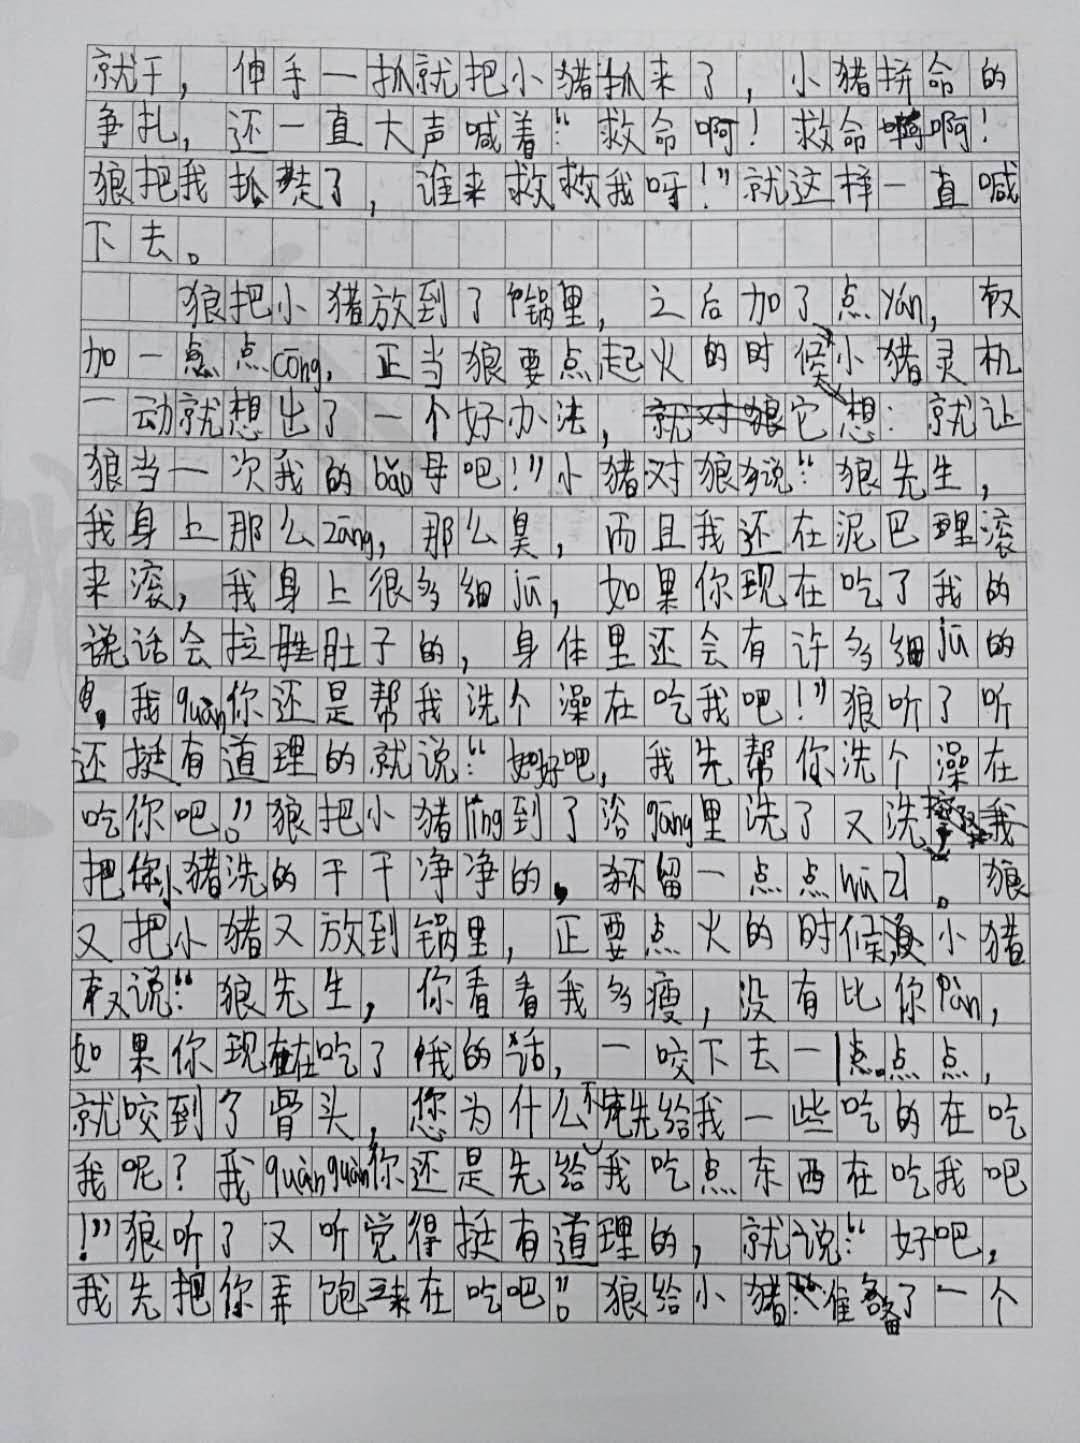 就干，伸手一抓就把小猪抓来了，小猪拼命的
争扎，还一直大声喊着：“救命啊！救命啊！
狼把我抓走了，谁来救救我呀！”就这样一直喊
下去。
狼把小猪放到了锅里，之后加了点yán，又
加一点点cōng，正当狼要点起火的时候小猪灵机
一动就想出了一个好办法，它想：就让
狼当一次我的bǎo母吧！”小猪对狼说：“狼先生，
我身上那么zāng，那么臭，而且我还在泥巴理滚
来滚，我身上很多细jūn，如果你现在吃了我的
话会拉肚子的，身体里还会有许多细jūn的
，我quàn你还是帮我洗个澡在吃我吧！”狼听了听
还挺有道理的就说：“好吧，我先帮你洗个澡在
吃你吧”。狼把小猪līng到了浴gāng里洗了又洗
把小猪洗的干干净净的，不留一点点huī。狼
又把小猪又放到锅里，正要点火的时候，小猪
又说：“狼先生，你看看我多瘦，没有比你pàng，
如果你现在吃了我的话，一咬下去一点点，
就咬到了骨头，您为什么不先给我一些吃的在吃
我呢？我quànquàn你还是先给我吃点东西在吃我吧
！”狼听了又听觉得挺有道理的，就说：“好吧，
我先把你弄饱来在吃吧”。狼给小猪准备了一个